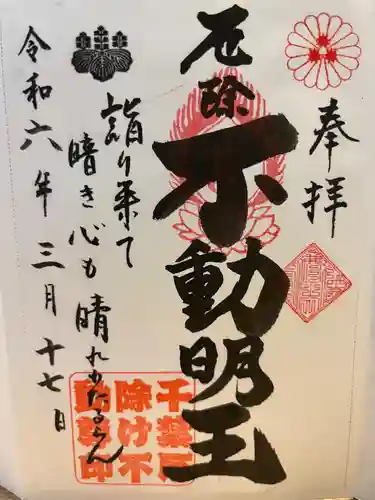 奉拝
厄除
不動明王
詣り来て
暗き心も
晴れわたるらん
令和六年三月十七日
千葉厄
除け不
動尊印